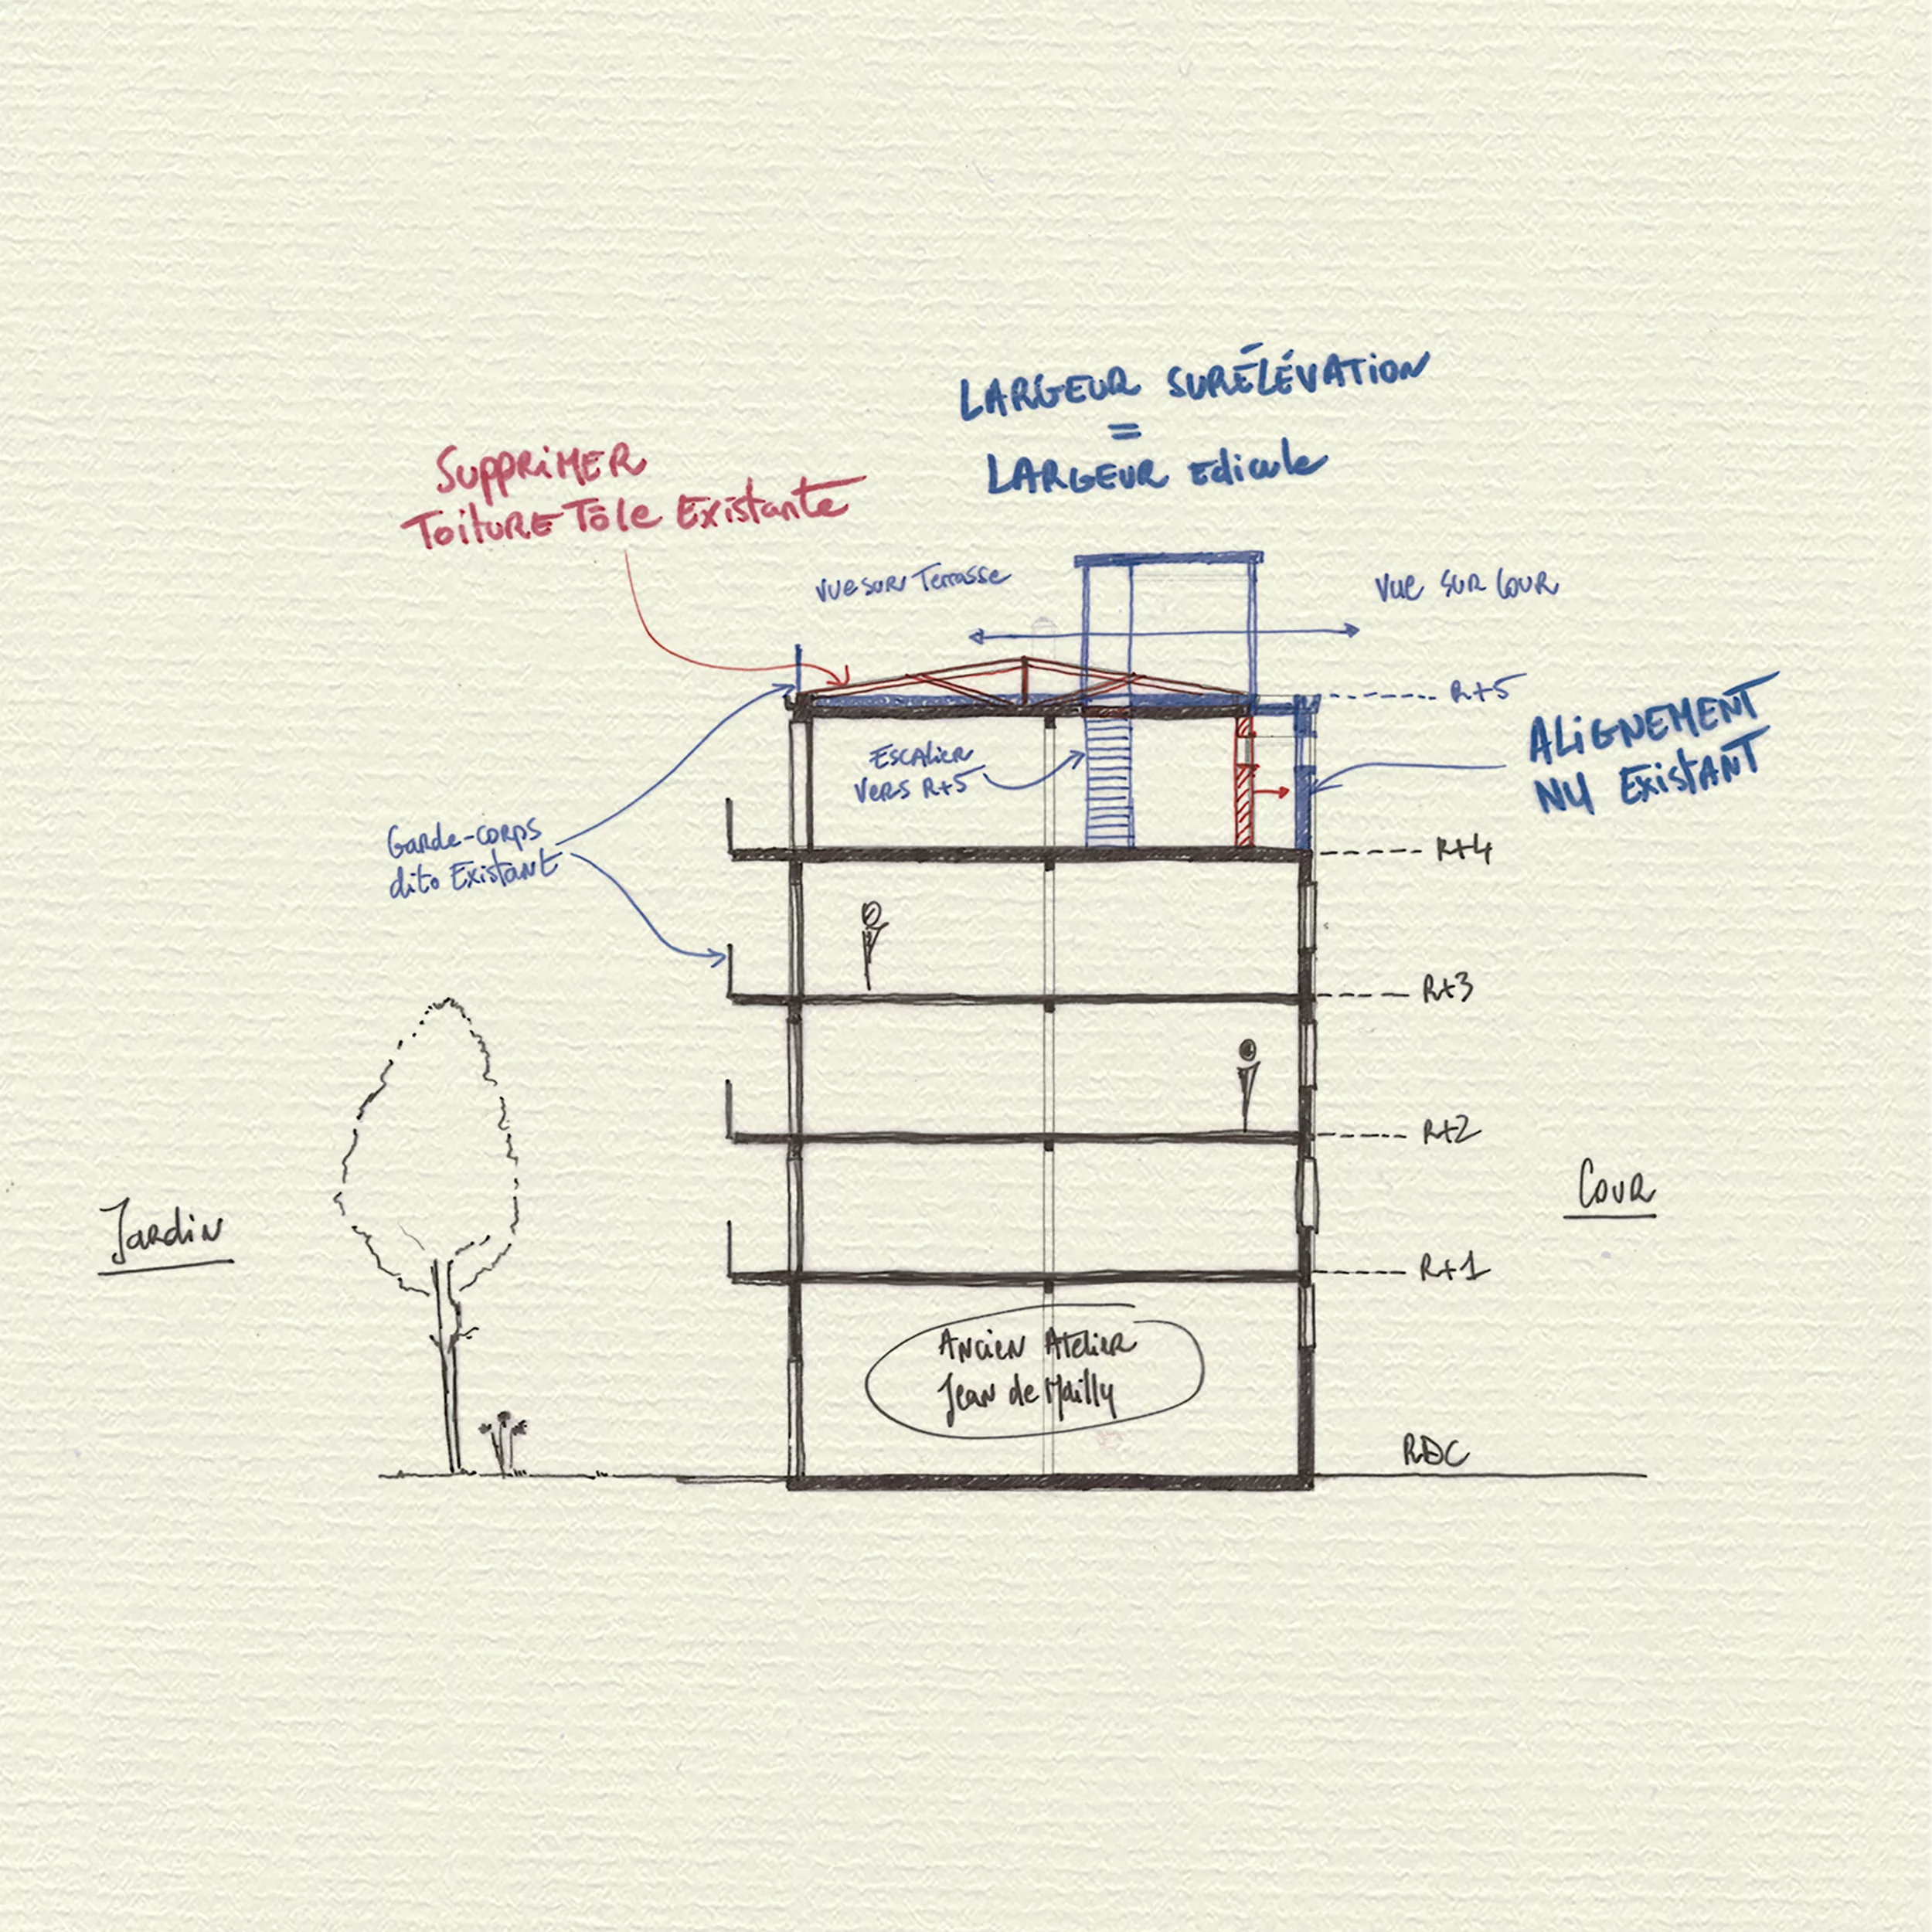 LARGEUR SURÉLÉVATION
=
LARGEUR Edicule
SUPPRIMER
Toiture Tôle Existante
vue sur Terrasse
vue sur cour
R+5
ALIGNEMENT
NU Existant
Escalier
vers R+5
Garde-corps
dito Existant
R+4
R+3
R+2
Jardin
Cour
R+1
Ancien Atelier
Jean de Mailly
RDC